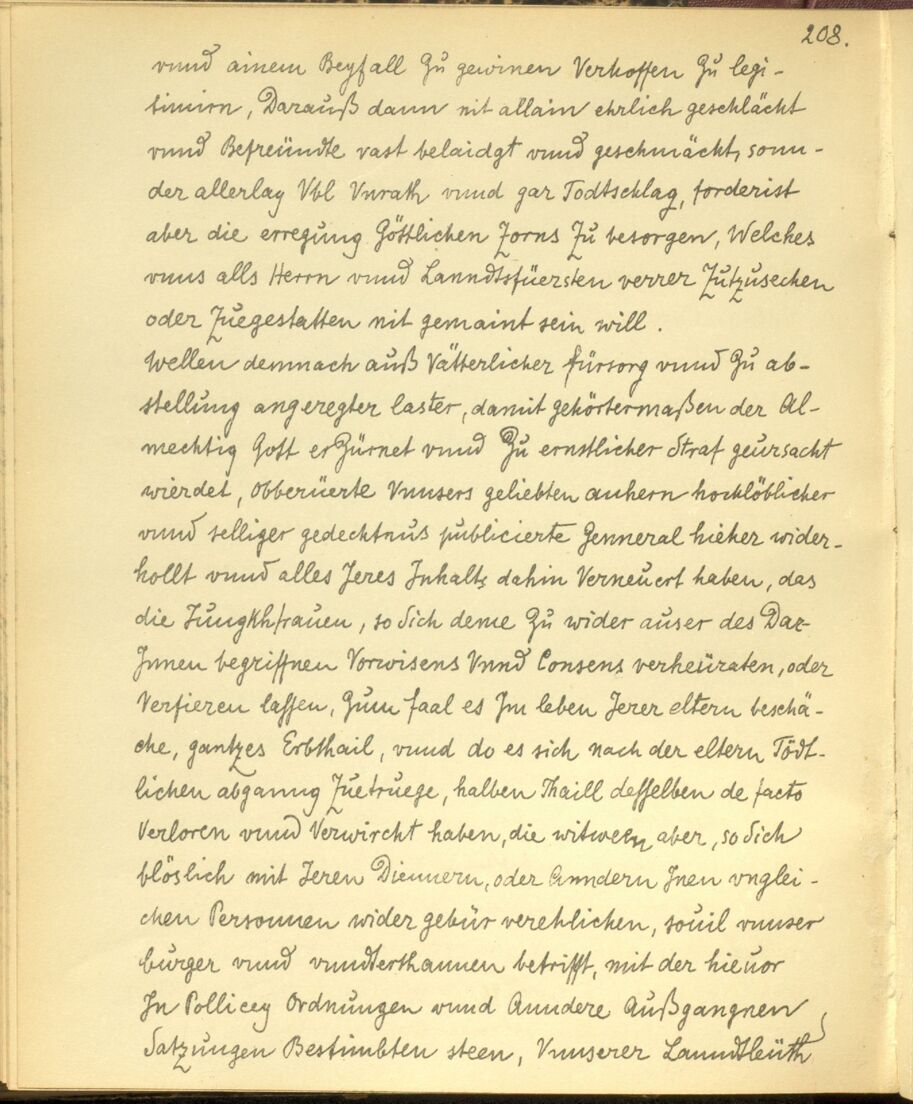 208.
vnnd ainem Beyfall Zu gewinen Verhoffen Zu legi-
timirn, Darauß dann nit allain ehrlich geschlächt
vnnd Befreündte vast belaidgt vnnd geschmächt, sonn-
der allerlay Vbl Vnrath vnnd gar Todtschlag, forderist
aber die erregung Göttlichen Zorns Zu besorgen, Welches
vnns alls Herrn vnnd Lanndtsfüersten verrer Zutzusechen
oder Zuegestatten nit gemaint sein will.
Wellen demnach auß Vätterlicher fürsorg vnnd Zu ab-
stellung angeregter laster, damit gehörtermaßen der Al-
mechtig Gott erZürnet vnnd Zu ernstlicher Straf geursacht
wierdet, Obberüerte Vnnsers geliebten anhern hochlöblicher
vnnd selliger gedechtnus publicierte Genneral hieher wider-
hollt vnnd alles Jeres Inhalts dahin Verneuert haben, das
die Jungkhfrauen, so Sich deme Zu wider auser des Dar-
Innen begriffnen Vorwisens Vnnd Consens verheüraten, oder
Verfieren lassen, Zum faal es Im leben Jerer eltern beschä-
che, gantzes Erbthail, vnnd do es sich nach der eltern Tödt-
lichen abganng Zuetruege, halben Thaill desselben de facto
Verloren vnnd Verwircht haben, die witweben aber, so Sich
blöslich mit Jeren Diennern, oder Anndern Inen vnglei-
chen Personnen wider gebür verehlichen, souil vnnser
burger vnnd vnndterthannen betrifft, mit der hieuor
In Pollicey Ordnungen vnnd Anndere Außgangnen
Satzungen Bestimbten steen, Vnnserer Lanndtleüth